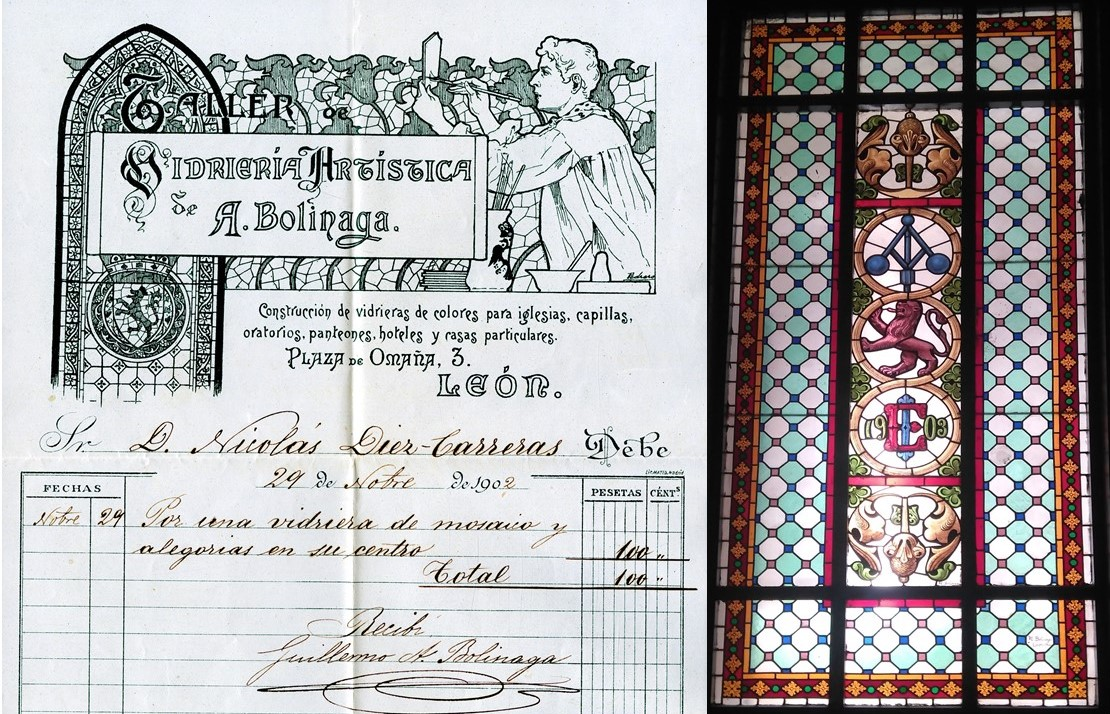 TALLER de
VIDRIERÍA ARTÍSTICA
de
A. Bolinaga.
Construcción de vidrieras de colores para iglesias, capillas,
oratorios, panteones, hoteles y casas particulares.
PLAZA DE OMAÑA, 3.
LEÓN.
Sr. D. Nicolás Diez-Carreras Debe
29 de Nobre de 1902
FECHAS PESETAS CÉNTS
Nobre 29 Por una vidriera de mosaico y
alegorias en su centro 100 "
Total 100 "
Recibí
Guillermo A. Bolinaga
19 E 03